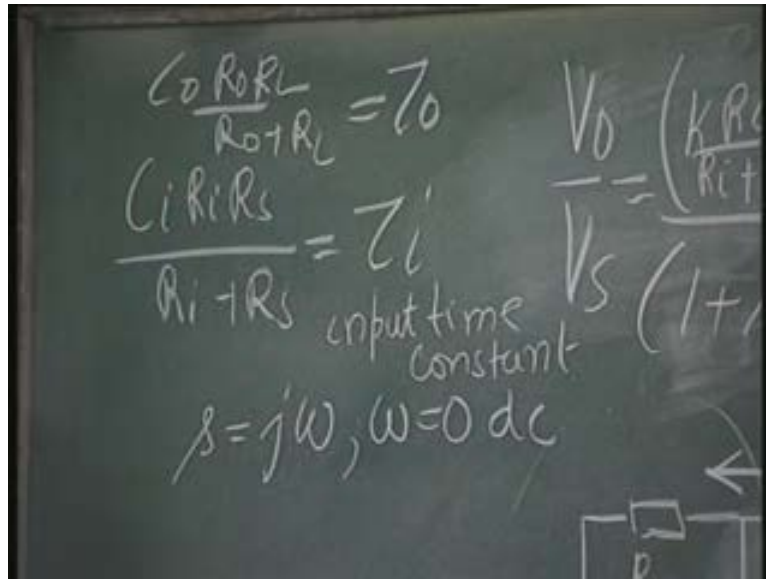 CoRoRL / Ro+RL = τo
CiRiRs / Ri+Rs = τi
input time
constant
s=jω, ω=0 dc
Vo / Vs = (KRi / Ri+
(1+
R